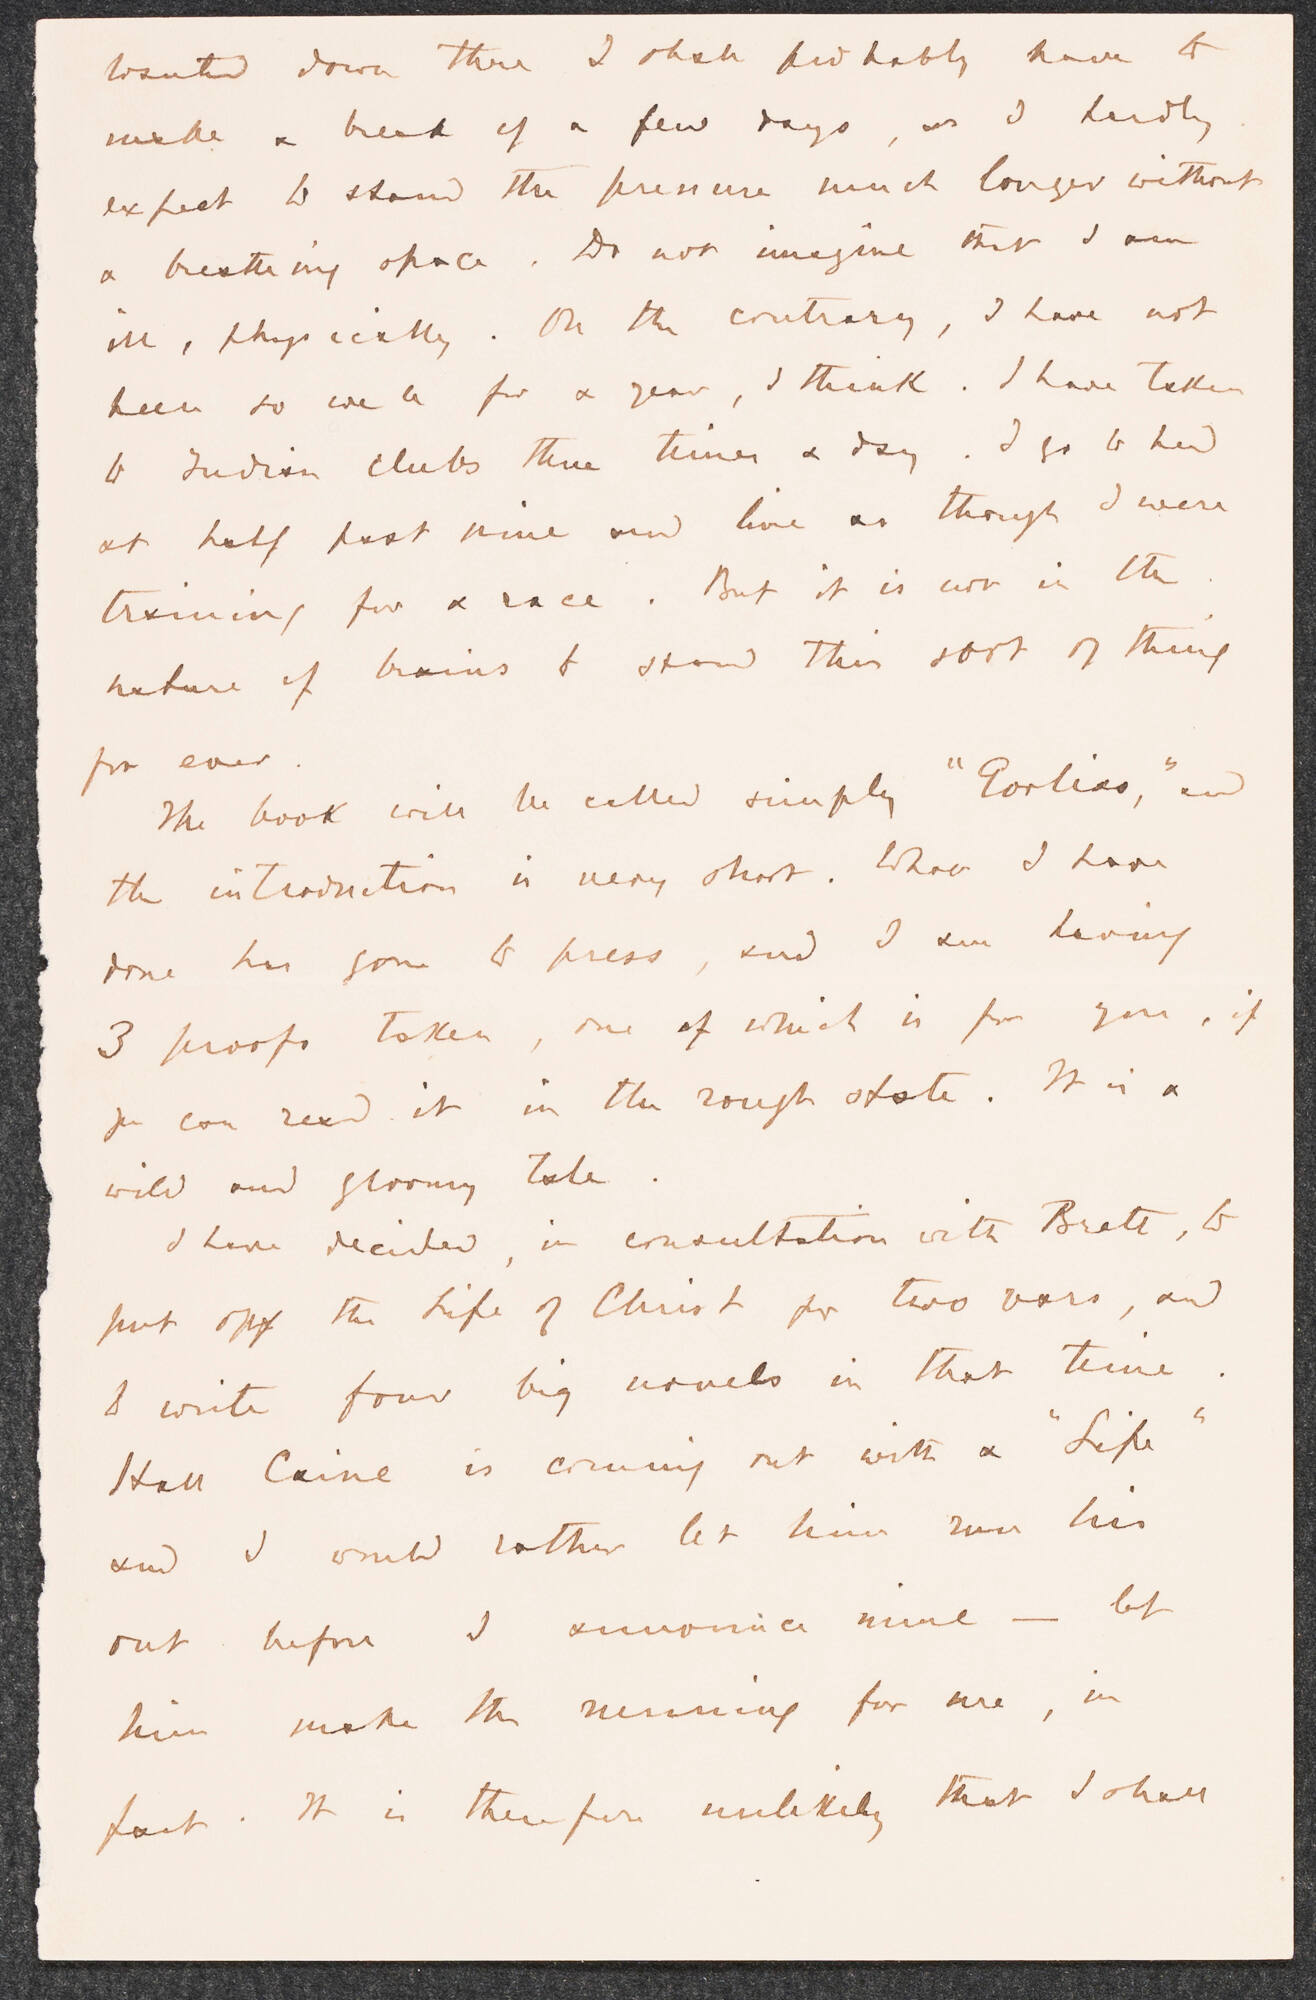 wanted down there I shall probably have to
make a break of a few days, as I hardly
expect to stand the pressure much longer without
a breathing space. Do not imagine that I am
ill, physically. On the contrary, I have not
been so well for a year, I think. I have taken
to Indian clubs three times a day. I go to bed
at half past nine and live as though I were
training for a race. But it is not in the
nature of brains to stand this sort of thing
for ever.
The book will be called simply "Corleone," and
the introduction is very short. What I have
done has gone to press, and I am having
3 proofs taken, one of which is for you, if
you can read it in the rough state. It is a
wild and gloomy tale.
I have decided, in consultation with Brett, to
put off the Life of Christ for two years, and
to write four big novels in that time.
Hall Caine is coming out with a "Life"
and I would rather let him run his
out before I announce mine — let
him make the running for me, in
fact. It is therefore unlikely that I shall